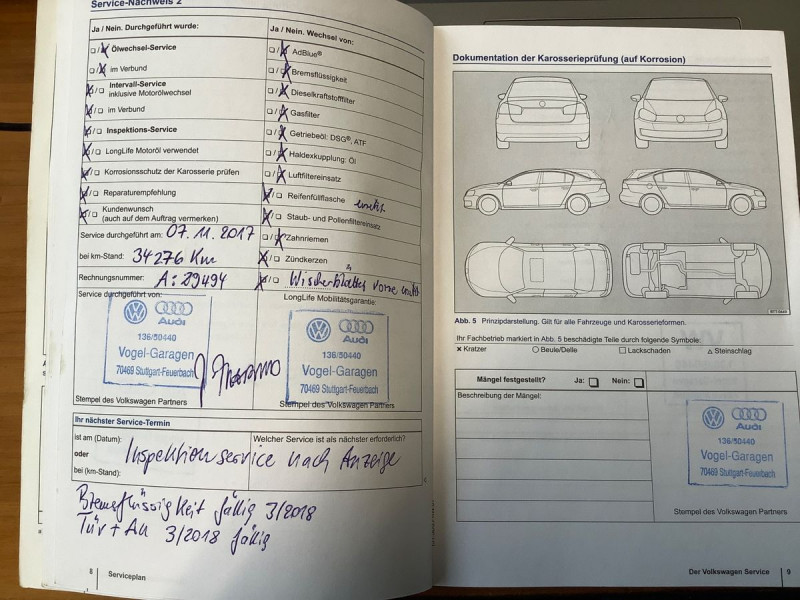 Service-Nachweis 2
Ja / Nein. Durchgeführt wurde:
Ölwechsel-Service
im Verbund
Intervall-Service
inklusive Motorölwechsel
im Verbund
Inspektions-Service
LongLife Motoröl verwendet
Korrosionsschutz der Karosserie prüfen
Reparaturempfehlung
Kundenwunsch
(auch auf dem Auftrag vermerken)
Service durchgeführt am: 07.11.2017
bei km-Stand: 34276 Km
Rechnungsnummer: A: 29494
Ja / Nein. Wechsel von:
AdBlue®
Bremsflüssigkeit
Dieselkraftstofffilter
Gasfilter
Getriebeöl: DSG®, ATF
Haldexkupplung: Öl
Luftfiltereinsatz
Reifenfüllflasche
Staub- und Pollenfiltereinsatz
Zahnriemen
Zündkerzen
Wischerblätter vorne
Service durchgeführt von:
Audi
136/50440
Vogel-Garagen
70469 Stuttgart-Feuerbach
Stempel des Volkswagen Partners
LongLife Mobilitätsgarantie:
Audi
136/50440
Vogel-Garagen
70469 Stuttgart-Feuerbach
Stempel des Volkswagen Partners
Ihr nächster Service-Termin
ist am (Datum):
oder
bei (km-Stand):
Welcher Service ist als nächster erforderlich?
Inspektionservice nach Anzeige
Bremsflüssigkeit fällig 3/2018
Tüv + Au 3/2018 fällig
8
Serviceplan
Dokumentation der Karosserieprüfung (auf Korrosion)
Abb. 5 Prinzipdarstellung. Gilt für alle Fahrzeuge und Karosserieformen.
Ihr Fachbetrieb markiert in Abb. 5 beschädigte Teile durch folgende Symbole:
× Kratzer ○ Beule/Delle □ Lackschaden △ Steinschlag
Mängel festgestellt? Ja: □ Nein: □
Beschreibung der Mängel:
Audi
136/50440
Vogel-Garagen
70469 Stuttgart-Feuerbach
Stempel des Volkswagen Partners
Der Volkswagen Service
9